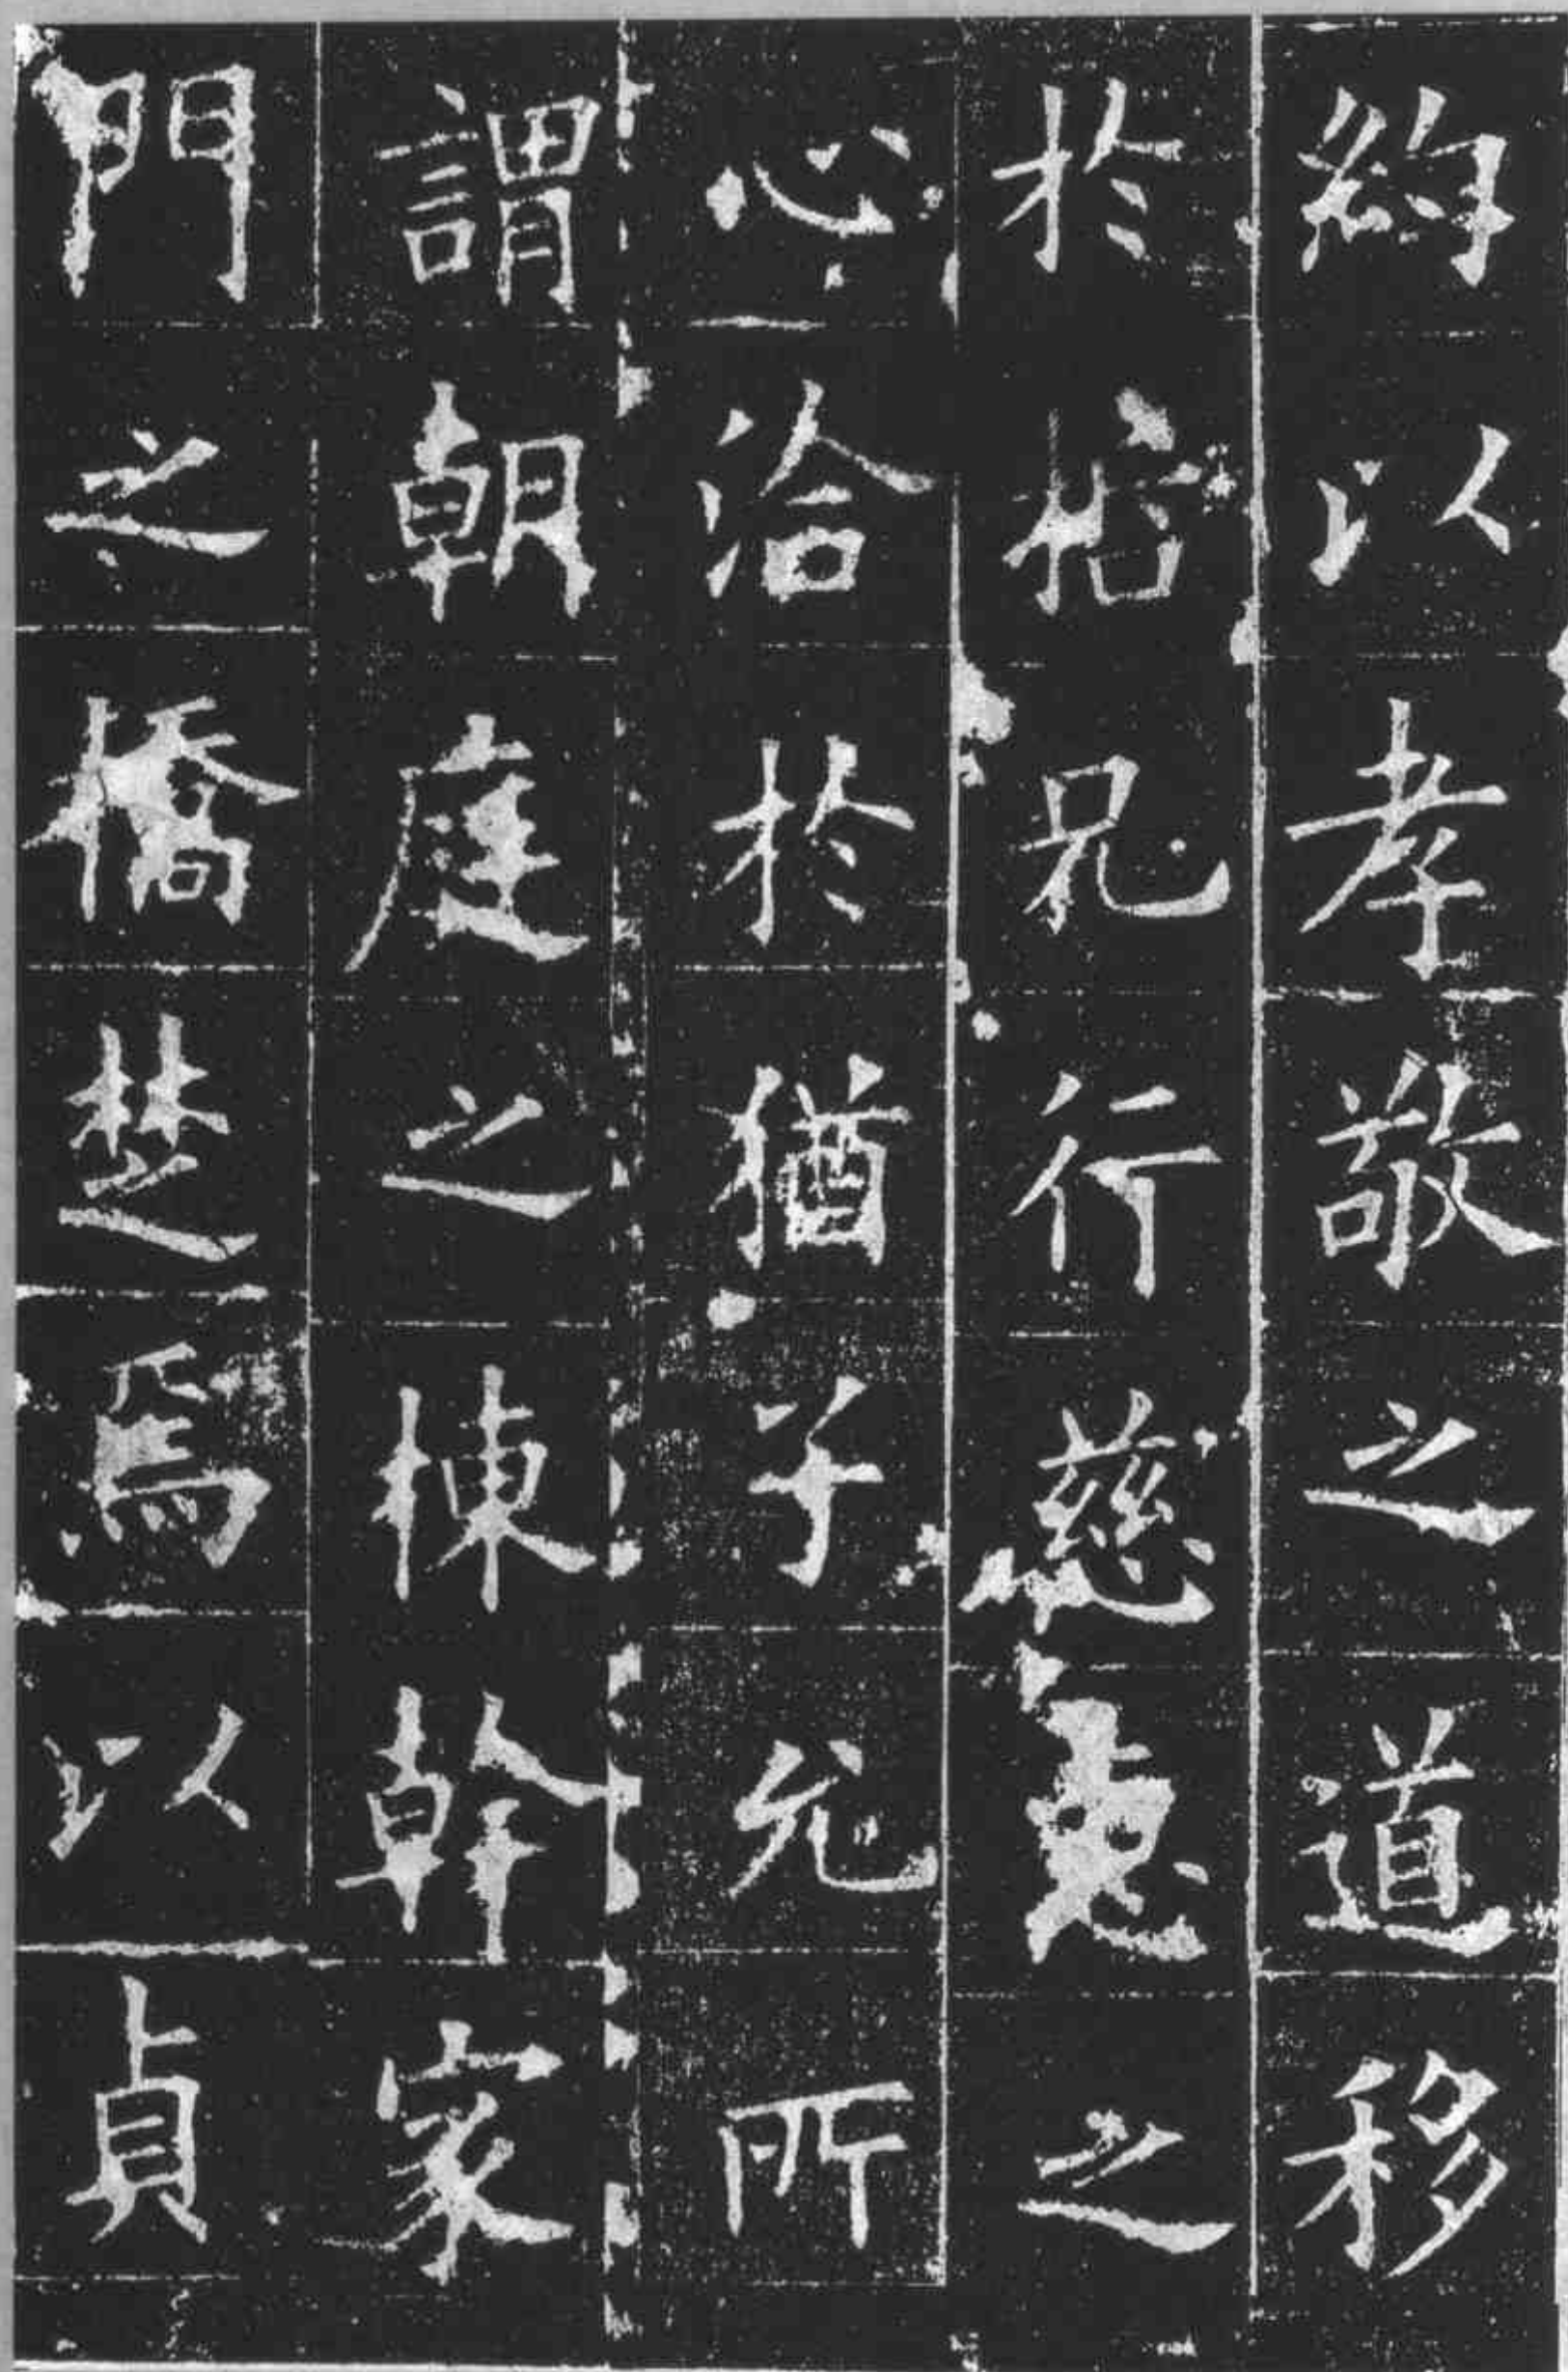 以孝敬之道移
於兄行慈惠之
心洽於猶子允所
謂朝庭之棟幹家
門之橋楚焉以貞